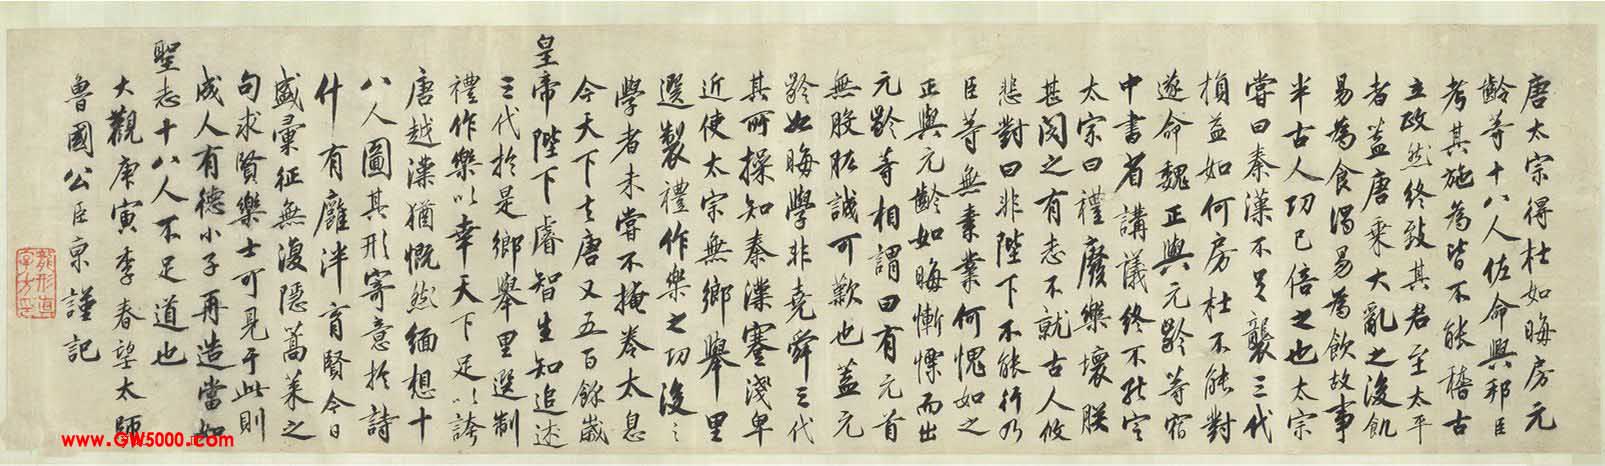 唐太宗得杜如晦房元
齡等十八人佐命興邦臣
考其施為皆不能稽古
立政然終致其君至太平
者蓋唐乘大亂之後飢
易為食渴易為飲故事
半古人功已倍之也太宗
嘗曰秦漢不足襲三代
損益如何房杜不能對
遂命魏正與元齡等宿
中書省講議終不能定
太宗曰禮廢樂壞朕
甚閔之有志不就古人攸
悲對曰非陛下不能行乃
臣等無素業何愧如之
正與元齡如晦慚慄而出
元齡等相謂曰有元首
無股肱誠可歎也蓋元
齡如晦學非堯舜三代
其所操知秦漢蹇淺卑
近使太宗無鄉舉里
選製禮作樂之功後之
學者未嘗不掩卷太息
今天下去唐又五百餘歲
皇帝陛下睿智生知追述
三代於是鄉舉里選制
禮作樂以幸天下足以誇
唐越漢猶慨然緬想十
八人圖其形寄意於詩
什有廱泮育賢今日
盛彙征無復隱蒿萊之
句求賢樂士可見于此則
成人有德小子再造當如
聖志十八人不足道也
大觀庚寅季春望太師
魯國公臣京謹記
www.GW5000.com